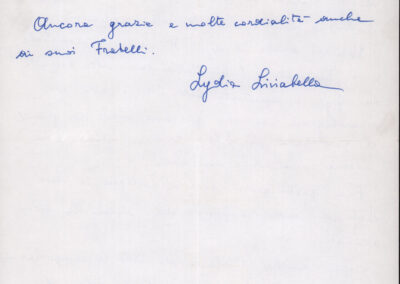 Ancora grazie e molte cordialità anche
ai suoi Fratelli.
Lydia Liviabella